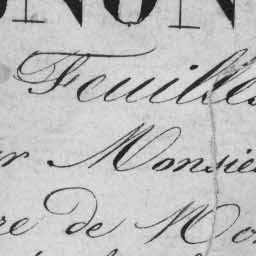 NON
Feuille
r Monsie
re de Mo